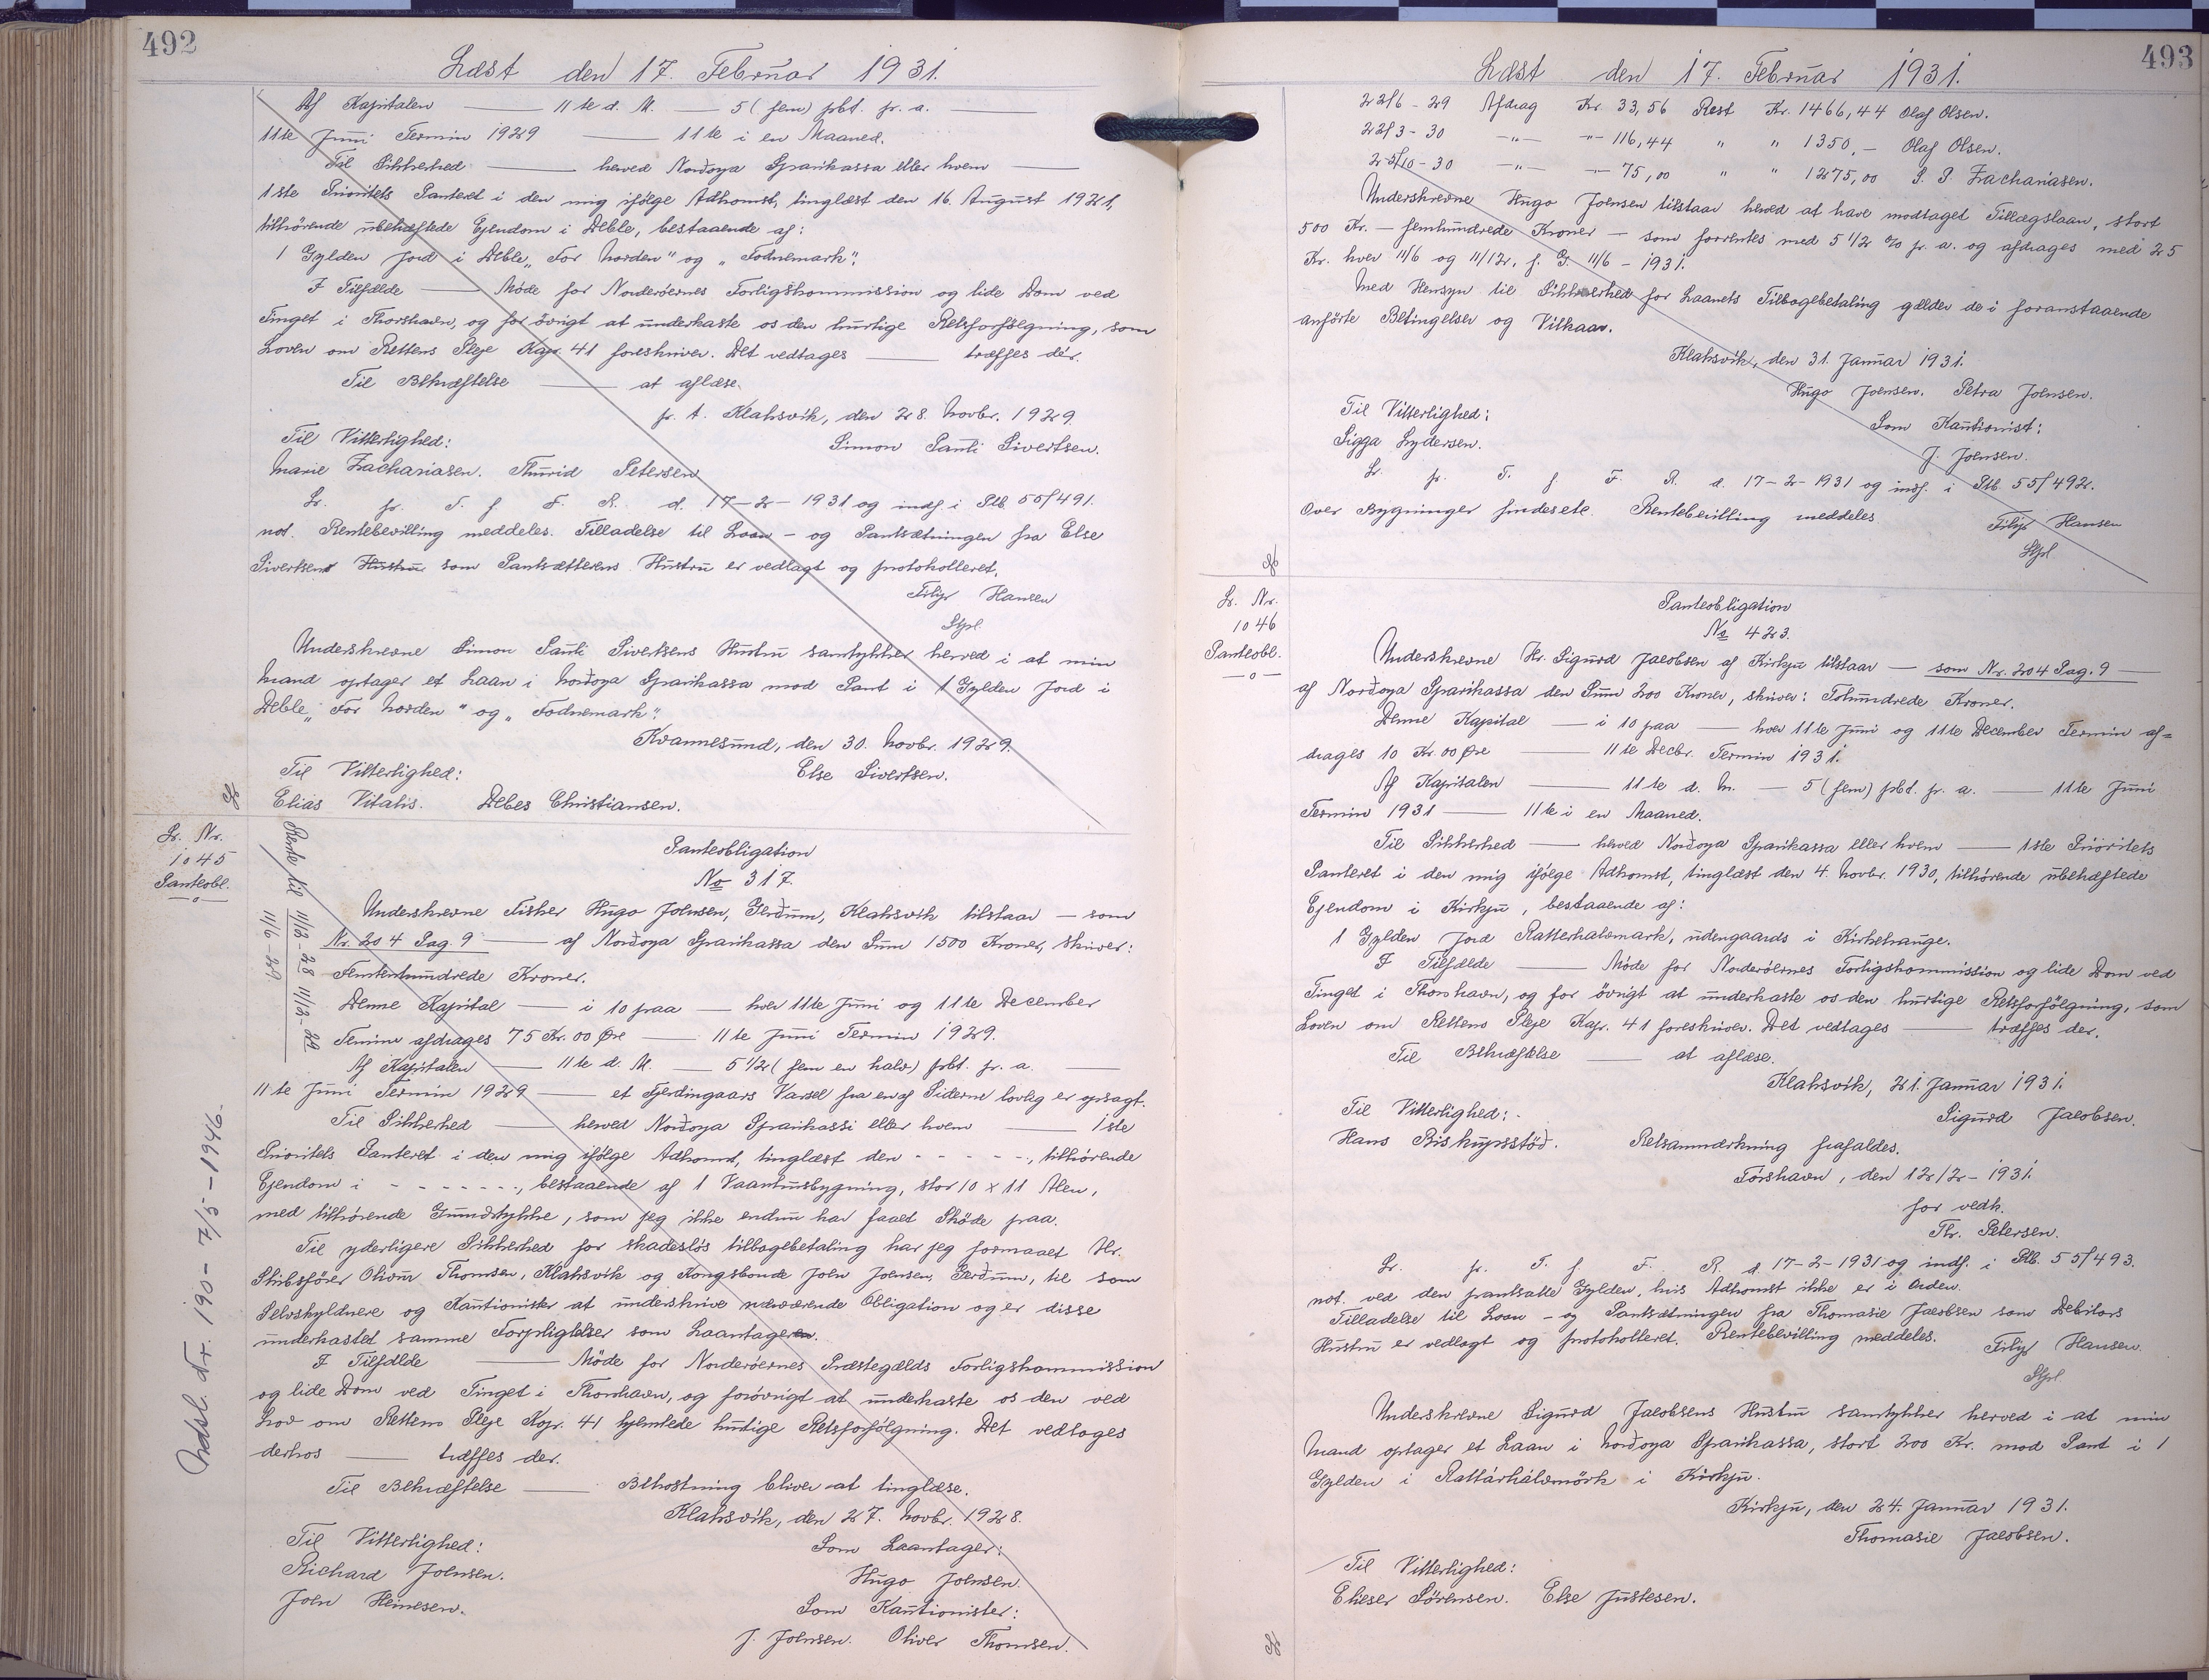 492
Læst den 17. Februar 1931.
Af Kapitalen — 11te d. M. — 5 (fem) pct. p. a. —
11te Juni Termin 1929 — 11te i en Maaned.
Til Sikkerhed — herved Nordoya Sparikassa eller hvem —
1ste Prioritets Panteret i den mig ifølge Adkomst, tinglæst den 16. August 1921,
tilhørende ubehæftede Ejendom i Deble, bestaaende af:
1 Gylden Jord i Deble „For Norden" og „Fodnemark".
I Tilfælde — Møde for Norderöernes Forligskommission og lide Dom ved
Tinget i Thorshavn, og for övrigt at underkaste os den hurtige Retsforfölgning, som
Loven om Rettens Pleje Kap. 41 foreskriver. Det vedtages — træffes dér.
Til Bekræftelse — at aflæse.
p. t. Klaksvík, den 28. Novbr. 1929.
Til Vitterlighed: Simon Pauli Sivertsen.
Marie Zachariasen. Thurid Petersen
Lr. pr. T. f F. R. d. 17-2-1931 og indf i Ptb. 55/491.
not. Rentebevilling meddeles. Tilladelse til Laan - og Pantsætningen fra Else
Sivertsens Hustru som Pantsætterens Hustru er vedlagt og protokolleret.
Filip Hansen
Stpl.
Underskrevne Simon Pauli Sivertsens Hustru samtykker herved i at min
Mand optager et Laan i Norðoya Sparikassa mod Pant i 1 Gylden Jord i
Deble „For Norden" og „Fodnemark".
Kvannesund, den 30. Novbr. 1929.
Til Vitterlighed: Else Sivertsen.
Elias Vitalis. Debes Christiansen.
Lr. Nr.
1045
Panteobl.
—o—
Rente til 11/12-28 11/12-29
11/6-29
Panteobligation
No 317.
Underskrevne Fisker Hugo Joensen, Gerðum, Klaksvík tilstaar — som
Nr. 204 Pag. 9 — af Norðoya Sparikassa den Sum 1500 Kroner, skriver:
Femtenhundrede Kroner.
Denne Kapital — i 10 paa — hver 11te Juni og 11te December
Termin afdrages 75 Kr. 00 Øre — 11te Juni Termin 1929.
Af Kapitalen — 11te d. M. — 5 1/2 (fem en halv) pct. p. a. —
11te Juni Termin 1929 — et Fjerdingaars Varsel fra en af Siderne lovlig er opsagt.
Til Sikkerhed — herved Norðoya Sparikassi eller hvem — 1ste
Prioritets Panteret i den mig ifølge Adkomst, tinglæst den - - - - -, tilhørende
Ejendom i - - - - - - -, bestaaende af 1 Vaanhusbygning, stor 10 x 11 Alen,
med tilhørende Grundstykke, som jeg ikke endnu har faaet Skøde paa.
Til yderligere Sikkerhed for skadeslös tilbagebetaling har jeg formaaet Hr.
Skibsförer Olivur Thomsen, Klaksvík og Kongsbonde Joen Joensen, Gerðum, til som
Selvskyldnere og Kautionister at underskrive nærværende Obligation og er disse
underkastet samme Forpligtelser som Laantageren.
I Tilfælde — Møde for Norderöernes Præstegælds Forligskommission
og lide Dom ved Tinget i Thorshavn, og forövrigt at underkaste os den ved
Lov om Rettens Pleje Kap. 41 hjemlede hurtige Retsforfölgning. Det vedtages
derhos — træffes der.
Til Bekræftelse — Bekostning bliver at tinglæse.
Klaksvík, den 27. Novbr. 1928.
Til Vitterlighed: Som Laantager:
Richard Joensen. Hugo Joensen.
Joen Heinesen. Som Kautionister:
J. Joensen. Oliver Thomsen.
Udsl. Nr. 190 - 7/5 - 1946.
493
Læst den 17. Februar 1931.
22/6 - 29 Afdrag Kr. 33,56 Rest Kr. 1466,44 Olaf Olsen.
22/3 - 30 -"- -"- 116,44 " " 1350,- Olaf Olsen.
25/10 - 30 -"- -"- 75,00 " " 1275,00 S. P. Zachariasen.
Underskrevne Hugo Joensen tilstaar herved at have modtaget Tillægslaan, stort
500 Kr. - femhundrede Kroner - som forrentes med 5 1/2 % p. a. og afdrages med 25
Kr. hver 11/6 og 11/12, f. G. 11/6 - 1931.
Med Hensyn til Sikkerhed for Laanets Tilbagebetaling gælder de i foranstaaende
anførte Betingelser og Vilkaar.
Klaksvík, den 31. Januar 1931.
Hugo Joensen. Petra Joensen.
Til Vitterlighed: Som Kautionist:
Sigga Lydersen. J. Joensen.
Lr. pr. T. f F. R. d. 17-2-1931 og indf. i Ptb. 55/492.
Over Bygninger findes etc. Rentebevilling meddeles
Filip Hansen
Stpl
Lr. Nr.
1046
Panteobl.
—o—
Panteobligation
No 423.
Underskrevne Hr. Sigurd Jacobsen af Kirkju tilstaar — som Nr. 204 Pag. 9 —
af Norðoya Sparikassa den Sum 200 Kroner, skriver: Tohundrede Kroner.
Denne Kapital — i 10 paa — hver 11te Juni og 11te December Termin af=
drages 10 Kr. 00 Øre — 11te Decbr. Termin 1931.
Af Kapitalen — 11te d. M. — 5 (fem) pct. p. a. — 11te Juni
Termin 1931 — 11te i en Maaned.
Til Sikkerhed — herved Norðoya Sparikassa eller hvem — 1ste Prioritets
Panteret i den mig ifølge Adkomst, tinglæst den 4. Novbr. 1930, tilhørende ubehæftede
Ejendom i Kirkju, bestaaende af:
1 Gylden Jord Ratterhalsmark, udengaards i Kirkehauge.
I Tilfælde — Møde for Norderöernes Forligskommission og lide Dom ved
Tinget i Thorshavn, og for övrigt at underkaste os den hurtige Retsforfölgning, som
Loven om Rettens Pleje Kap. 41 foreskriver. Det vedtages — træffes der.
Til Bekræftelse — at aflæse.
Klaksvík, 21. Januar 1931.
Til Vitterlighed: Sigurd Jacobsen.
Hans Biskupsstöð. Retsanmærkning frafaldes.
Tórshavn, den 12/2-1931.
for vedk.
Th. Petersen.
Lr. pr. T. f F. R. d. 17-2-1931 og indf. i Ptb. 55/493.
not. ved den pantsatte Gylden, hvis Adkomst ikke er i Orden.
Tilladelse til Laan - og Pantsætningen fra Thomasie Jacobsen som Debitors
Hustru er vedlagt og protokolleret. Rentebevilling meddeles. Filip Hansen.
Stpl.
Underskrevne Sigurd Jacobsens Hustru samtykker herved i at min
Mand optager et Laan i Norðoya Sparikassa, stort 200 Kr. mod Pant i 1
Gylden i Rattárhálsmörk i Kirkju.
Kirkju, den 24. Januar 1931.
Thomasie Jacobsen.
Til Vitterlighed:
Elieser Sørensen. Else Justesen.